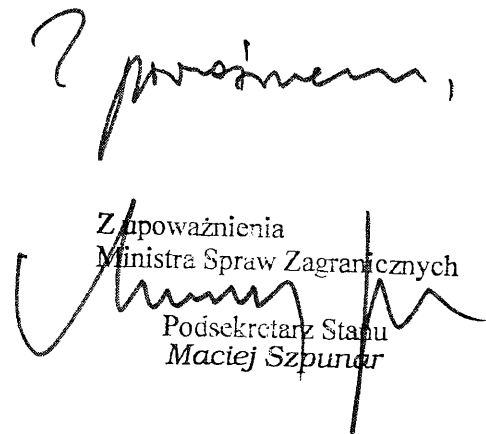 Z poważaniem,
Z upoważnienia
Ministra Spraw Zagranicznych
Podsekretarz Stanu
Maciej Szpunar